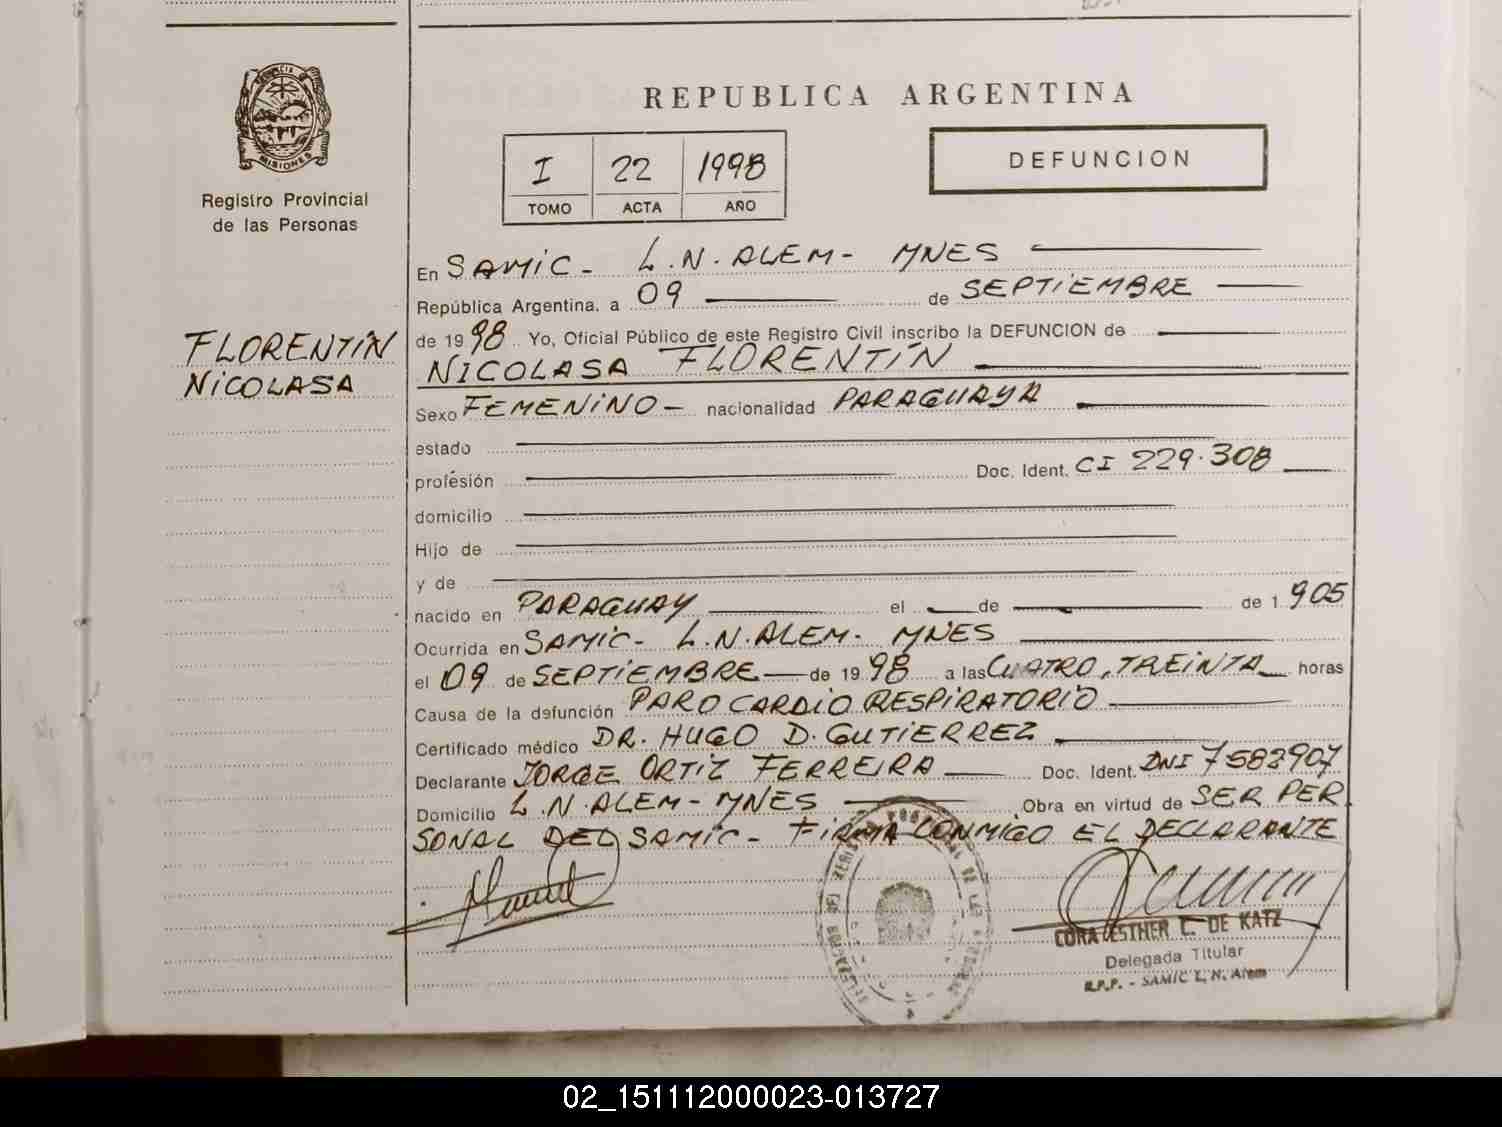 PROVINCIA DE
MISIONES
Registro Provincial
de las Personas
FLORENTIN
NICOLASA
REPUBLICA ARGENTINA
I 22 1998
TOMO ACTA AÑO
DEFUNCION
En SAMIC - L.N. ALEM - MNES
República Argentina, a 09 de SEPTIEMBRE
de 1998 Yo, Oficial Público de este Registro Civil inscribo la DEFUNCION de
NICOLASA FLORENTIN
Sexo FEMENINO - nacionalidad PARAGUAYA
estado
profesión Doc. Ident. CI 229.308
domicilio
Hijo de
y de
nacido en PARAGUAY el de de 1.905
Ocurrida en SAMIC - L.N. ALEM - MNES
el 09 de SEPTIEMBRE de 1998 a las CUATRO, TREINTA horas
Causa de la defunción PARO CARDIO RESPIRATORIO
Certificado médico DR. HUGO D. GUTIERREZ
Declarante JORGE ORTIZ FERREIRA Doc. Ident. DNI 7583907
Domicilio L.N. ALEM - MNES Obra en virtud de SER PER
SONAL DEL SAMIC - FIRMA CONMIGO EL DECLARANTE
CORA ESTHER C. DE KATZ
Delegada Titular
R.P.P. - SAMIC L. N. Alem
02_151112000023-013727